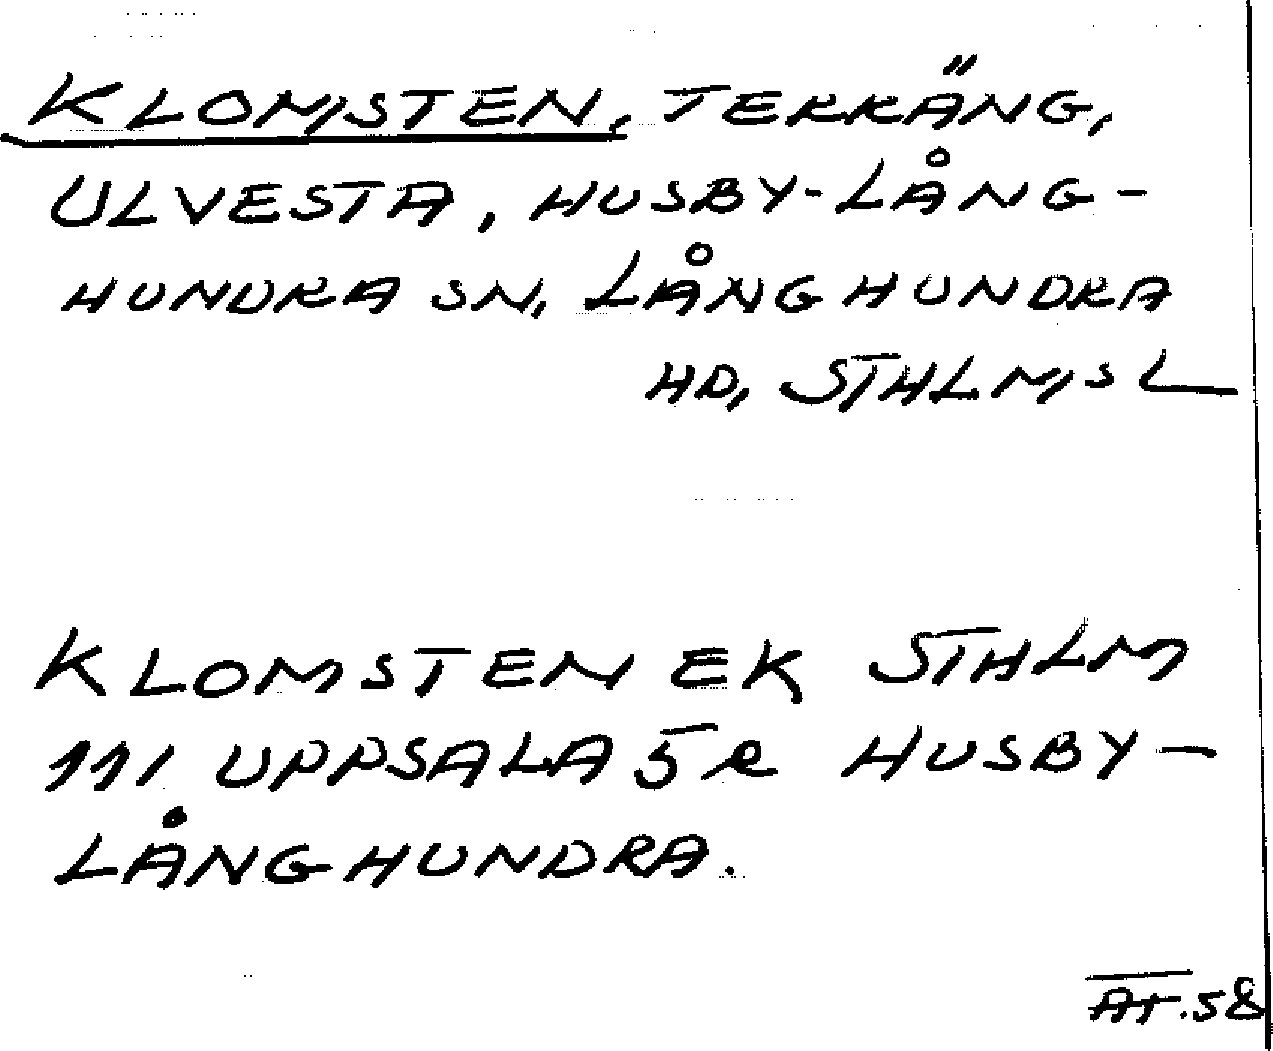 KLOMSTEN, TERRÄNG,
ULVESTA, HUSBY-LÅNG-
HUNDRA SN, LÅNGHUNDRA
HD, STHLMS L
KLOMSTEN EK STHLM
111 UPPSALA 5R HUSBY-
LÅNGHUNDRA.
AT. 58